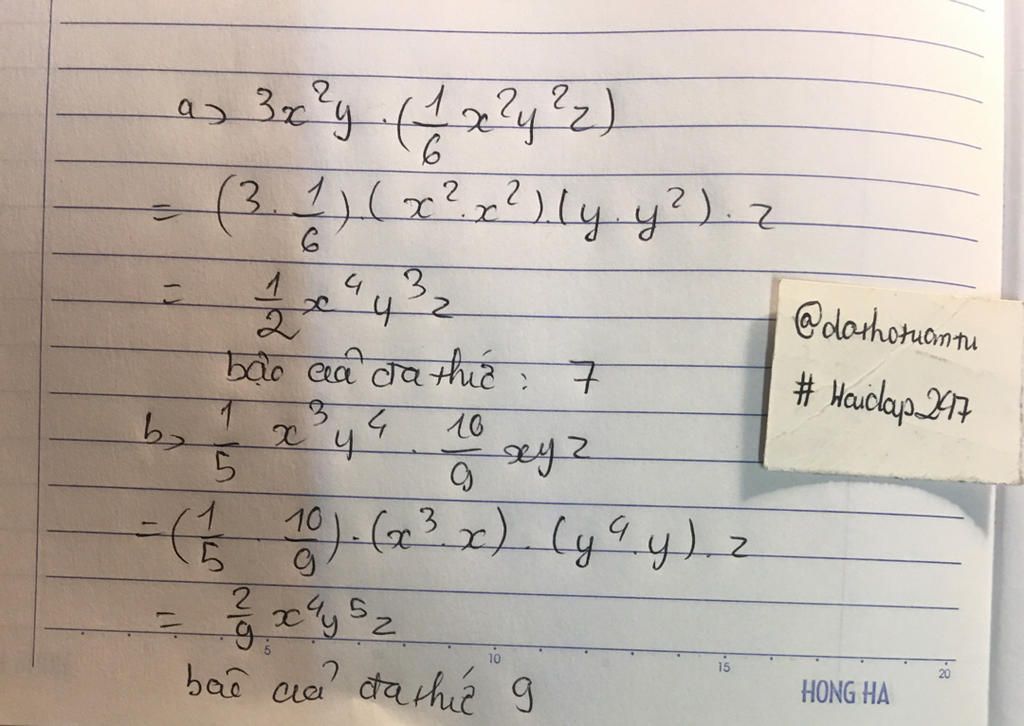 a> 3x²y . (1/6 x²y²z)
= (3 . 1/6) . (x² . x²) . (y . y²) . z
= 1/2 x⁴y³z
bậc của đa thức : 7
b> 1/5 x³y⁴ . 10/9 xyz
= (1/5 . 10/9) . (x³ . x) . (y⁴ . y) . z
= 2/9 x⁴y⁵z
bậc của đa thức 9
@dathotuantu
# Hoidap247
5 10 15 20
HONG HA